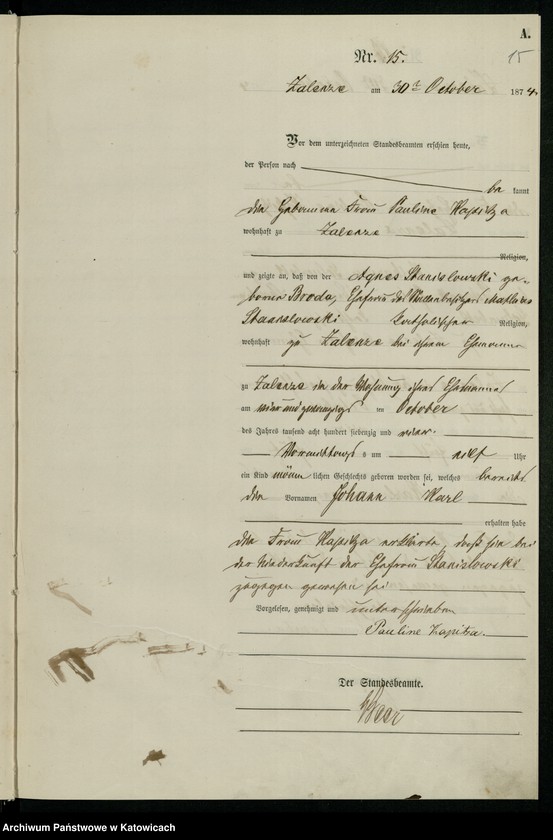 A.
Nr. 15.
15
Zalenze am 30t October 1874.
Vor dem unterzeichneten Standesbeamten erschien heute,
der Person nach
be kannt
die Hebamme Frau Pauline Kapitza
wohnhaft zu Zalenze
Religion,
und zeigte an, daß von der Agnes Stanislowski ge-
borene Broda, Ehefrau des Mathias
Stanislowski katholischer Religion,
wohnhaft zu Zalenze bei ihrem Ehemanne
zu Zalenze in der Wohnung ihres Ehemannes
am vier und zwanzigs ten October
des Jahres tausend acht hundert siebenzig und vier
Vormittags s um elf Uhr
ein Kind männ lichen Geschlechts geboren worden sei, welches bereits
den Vornamen Johann Karl
erhalten habe
Die Frau Kapitza erklärte, daß sie bei
der Niederkunft der Ehefrau Stanislowski
zugegen gewesen sei
Vorgelesen, genehmigt und unterschrieben
Pauline Kapitza.
Der Standesbeamte.
Archiwum Państwowe w Katowicach